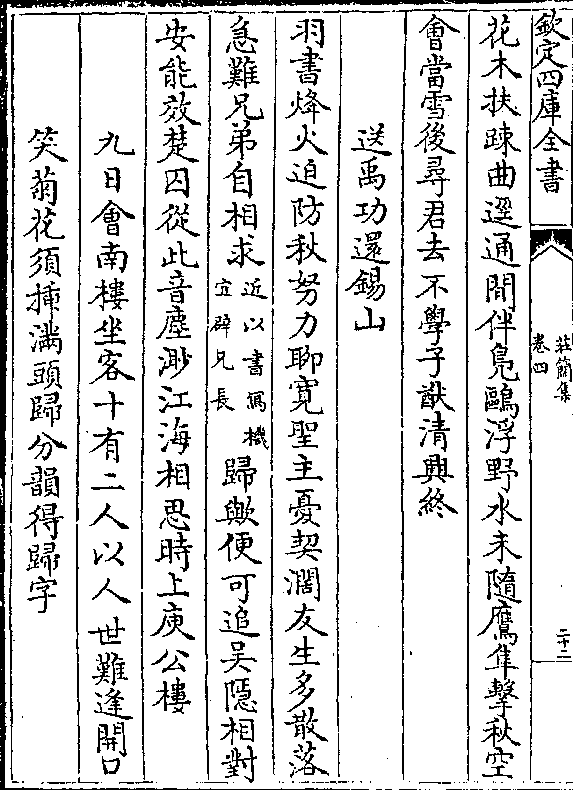 欽定四庫全書
莊簡集
卷四
二十二
花木扶踈曲逕通閒伴鳬鷗浮野水未隨鷹隼擊秋空
會當雪後尋君去不學子猷清興終
送禹功還錫山
羽書烽火迫防秋努力聊寛聖主憂契濶友生多散落
急難兄弟自相求近以書寫機宜辟兄長歸歟便可追吴隠相對
安能效楚囚從此音塵渺江海相思時上庾公樓
九日會南樓坐客十有二人以人世難逢開口
笑菊花須揷滿頭歸分韻得歸字